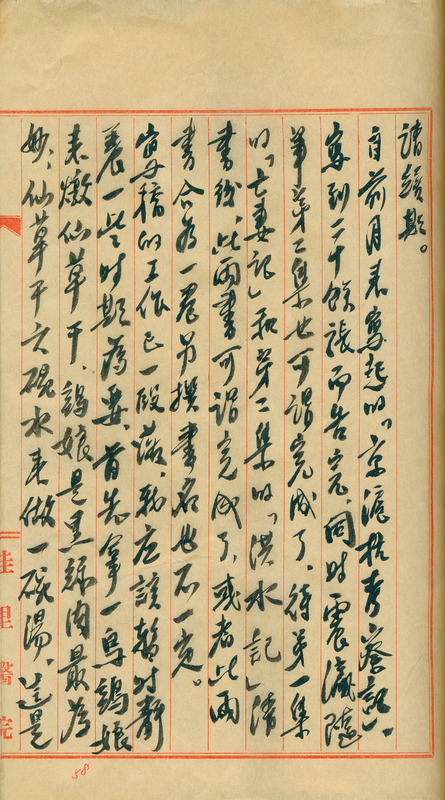 自前月来寫起的「京滬杭考察記」。
寫到二十餘張而告完，同时震瀛隨
筆第二集也可謂完成了，待第一集
的「亡妻記」和第二集的「洪水記」清
書後，此兩書可謂完成了，或者此兩
書合為一卷另撰書名也不一定。
寫稿的工作已一段落，我应該暫时靜
養一些时期為要。首先拿一隻鷄娘
来燉仙草干、鷄娘是黑綠肉最為
妙，仙草干六碗水来做一碗湯，這是
佳里醫院
58